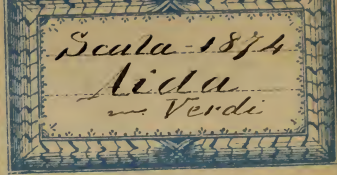 Scala - 1874
Aida
Verdi